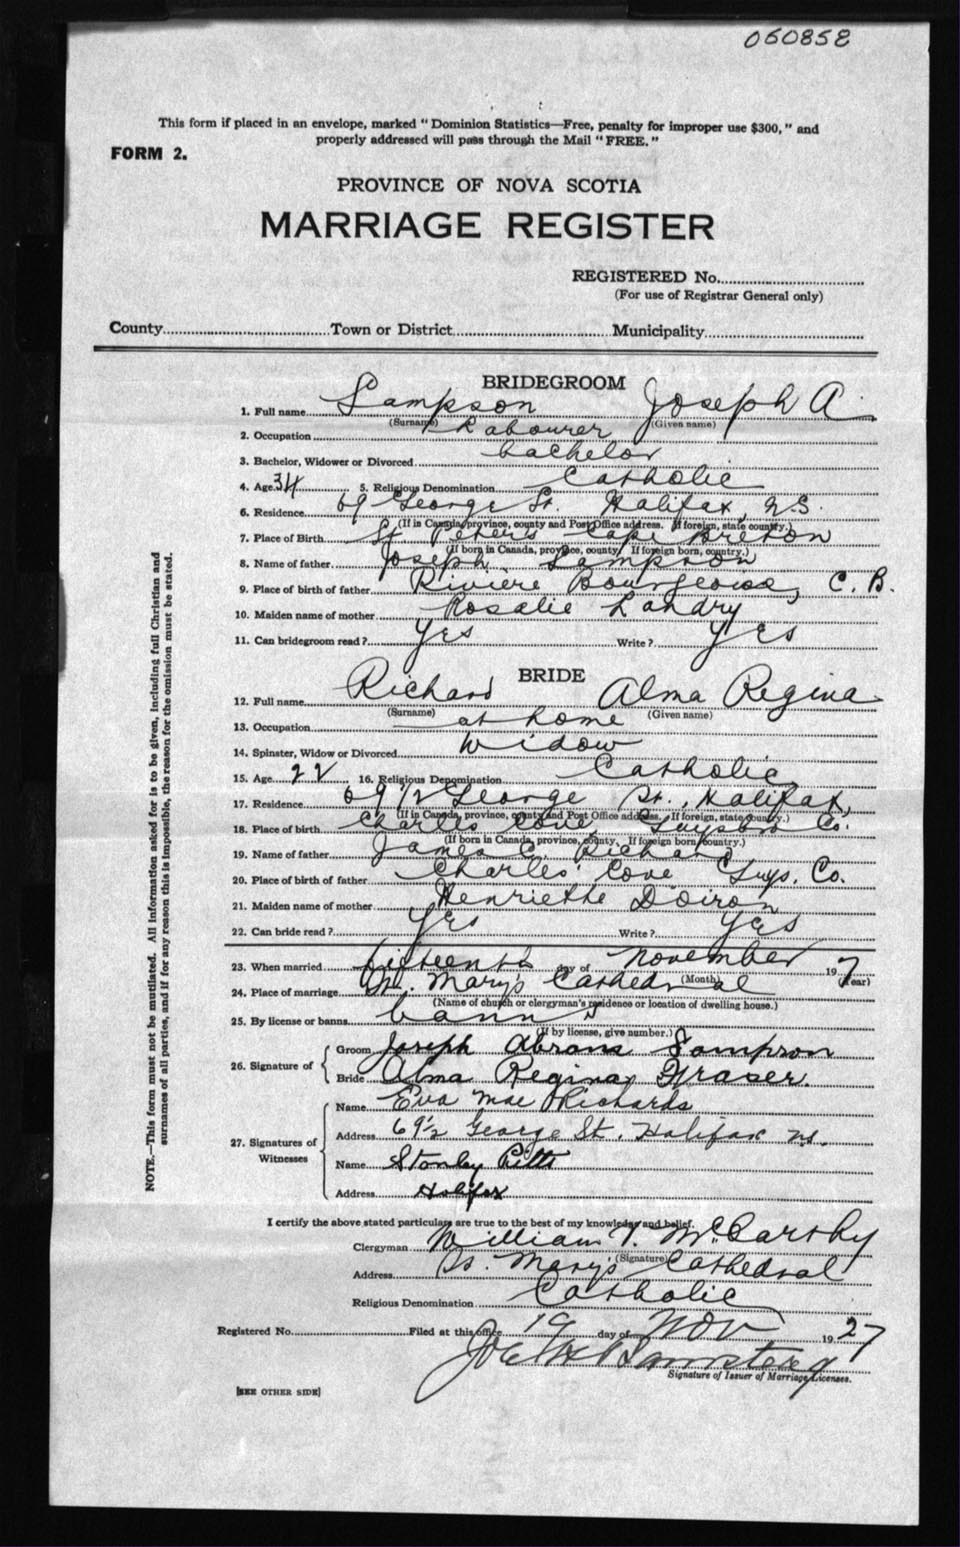 060858
This form if placed in an envelope, marked "Dominion Statistics—Free, penalty for improper use $300," and
properly addressed will pass through the Mail "FREE."
FORM 2.
PROVINCE OF NOVA SCOTIA
MARRIAGE REGISTER
REGISTERED No.
(For use of Registrar General only)
County Town or District Municipality
BRIDEGROOM
1. Full name Sampson Joseph A.
(Surname) (Given name)
2. Occupation Labourer
3. Bachelor, Widower or Divorced bachelor
4. Age 34 5. Religious Denomination Catholic
6. Residence 69 George St. Halifax, N.S.
(If in Canada, province, county and Post Office address. If foreign, state country.)
7. Place of Birth St Peters Cape Breton
(If born in Canada, province, county. If foreign born, country.)
8. Name of father Joseph Sampson
9. Place of birth of father Riviere Bourgeoise, C.B.
10. Maiden name of mother Rosalie Landry
11. Can bridegroom read? Yes Write? Yes
BRIDE
12. Full name Richard Alma Regina
(Surname) (Given name)
13. Occupation at home
14. Spinster, Widow or Divorced Widow
15. Age 22 16. Religious Denomination Catholic
17. Residence 69 1/2 George St., Halifax,
(If in Canada, province, county and Post Office address. If foreign, state country.)
18. Place of birth Charles Cove, Guysboro Co.
(If born in Canada, province, county. If foreign born, country.)
19. Name of father James C. Richard
20. Place of birth of father Charles' Cove Guys. Co.
21. Maiden name of mother Henriette Doiron
22. Can bride read? Yes Write? Yes
23. When married fifteenth day of November 19 7
(Month) (Year)
24. Place of marriage St. Mary's Cathedral
(Name of church or clergyman's residence or location of dwelling house.)
25. By license or banns banns
(If by license, give number.)
26. Signature of
Groom Joseph Abrans Sampson
Bride Alma Regina Fraser.
27. Signatures of Witnesses
Name Eva Mae Richards
Address 69½ George St. Halifax N.S.
Name Stanley Pitts
Address Halifax
I certify the above stated particulars are true to the best of my knowledge and belief.
Clergyman William T. McCarthy
(Signature)
Address St. Mary's Cathedral
Religious Denomination Catholic
Registered No. Filed at this office 19 day of Nov 19 27
Signature of Issuer of Marriage Licenses.
[SEE OTHER SIDE]
NOTE.—This form must not be mutilated. All information asked for is to be given, including full Christian and
surnames of all parties, and if for any reason this is impossible, the reason for the omission must be stated.